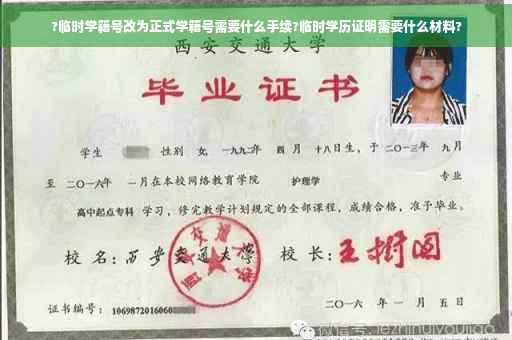 ?临时学籍号改为正式学籍号需要什么手续?临时学历证明需要什么材料?
西安交通大学
毕业证书
学生 性别 女, 一九九二年 四月 十八日生, 于二〇一三年 九月
至 二〇一六年 一月在本校网络教育学院 护理学 专业
高中起点专科 学习, 修完教学计划规定的全部课程, 成绩合格, 准予毕业。
校名: 西安交通大学 校长: 王树国
西安交通大学
证书编号: 1069872016060
二〇一六年 一月 五日
微信号: jezhihuiyoujiao